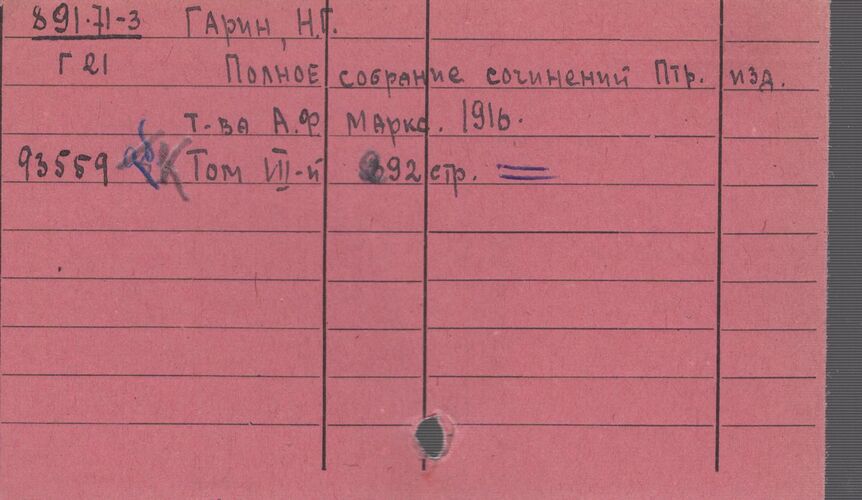 891.71-3 Гарин, Н.Г.
Г 21 Полное собрание сочинений Птр. изд.
т-ва А.Ф. Маркс. 1916.
93559 К Том VIII-й 392 стр.